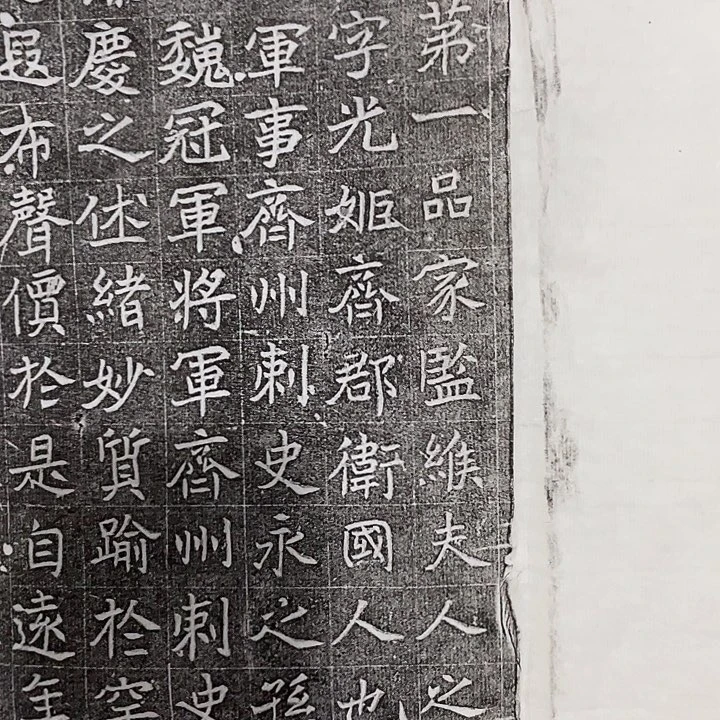 苐一品家監維夫人之
字光姬齊郡衛國人也
軍事齊州刺史永之孫
魏冠軍將軍齊州刺史
慶之休緒妙質踰於空
遐布聲價於是自遠年